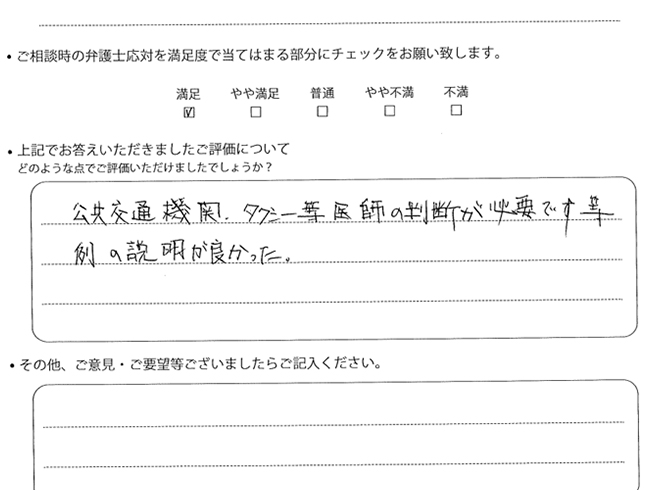 • ご相談時の弁護士応対を満足度で当てはまる部分にチェックをお願い致します。
満足 やや満足 普通 やや不満 不満
☑ □ □ □ □
• 上記でお答えいただきましたご評価について
どのような点でご評価いただけましたでしょうか？
公共交通機関、タクシー等医師の判断が必要です等
例の説明が良かった。
• その他、ご意見・ご要望等ございましたらご記入ください。